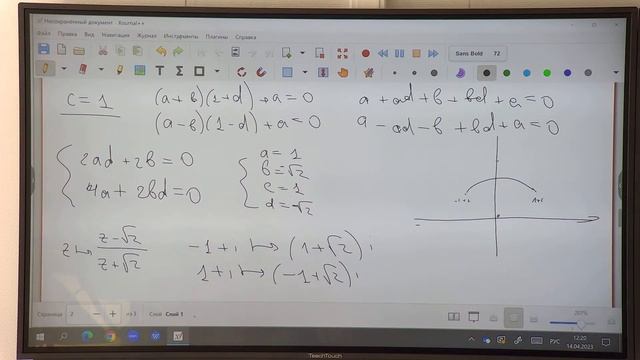 Несохранённый документ - Xournal++
Файл Правка Вид Навигация Журнал Инструменты Плагины Справка
Sans Bold 72
c = 1
(a+b)(1+d)+a=0
(a-b)(1-d)+a=0
a+ad+b+bd+a=0
a-ad-b+bd+a=0
2ad+2b=0
4a+2bd=0
a=1
b=√2
c=1
d=-√2
-1+i
1+i
z ↦ z-√2 / z+√2
-1+i ↦ (1+√2)i
1+i ↦ (-1+√2)i
Страница 2 из 3 Слой Слой 1
207%
РУС
12:20
14.04.2023
TeachTouch